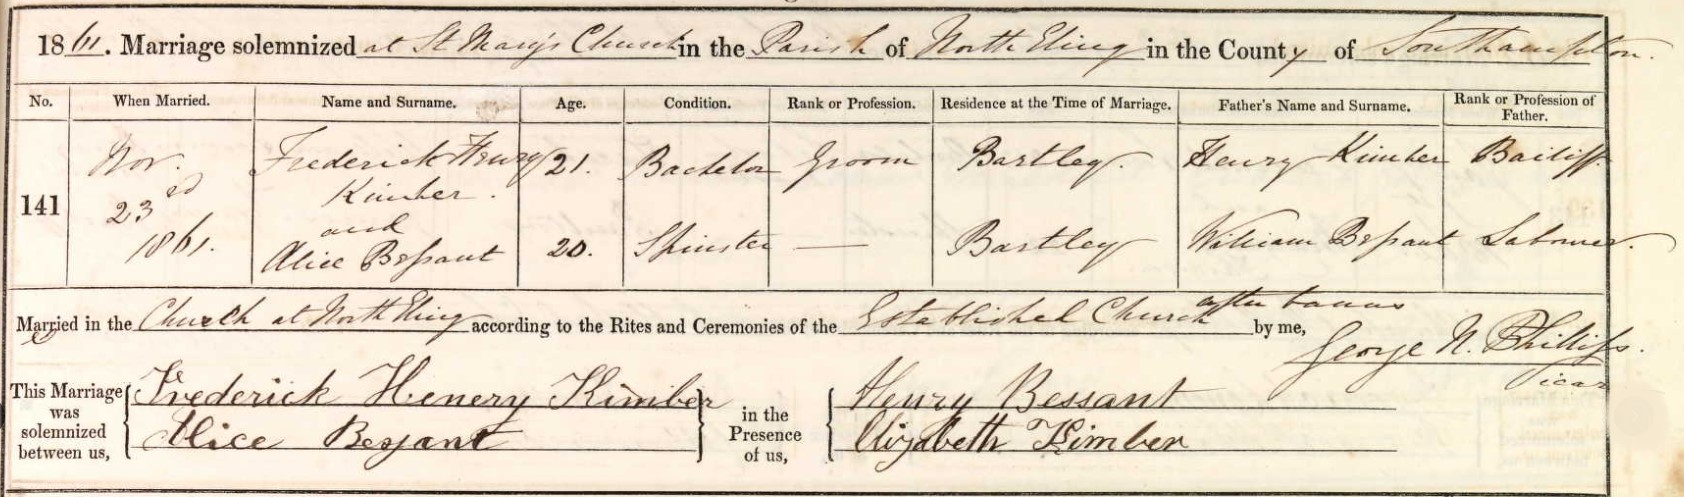 1861. Marriage solemnized at St Mary's Church in the Parish of North Eling in the County of Southampton.
No. When Married. Name and Surname. Age. Condition. Rank or Profession. Residence at the Time of Marriage. Father's Name and Surname. Rank or Profession of Father.
141 Nov. 23rd 1861. Frederick Henry Kimber. 21. Bachelor Groom Bartley. Henry Kimber Bailiff.
and
Alice Bessant 20. Spinster — Bartley William Bessant Labourer.
Married in the Church at North Eling according to the Rites and Ceremonies of the Established Church after banns by me,
George N. Phillips.
Vicar
This Marriage was solemnized between us,
Frederick Henery Kimber
Alice Bessant
in the Presence of us,
Henry Bessant
Elizabeth Kimber